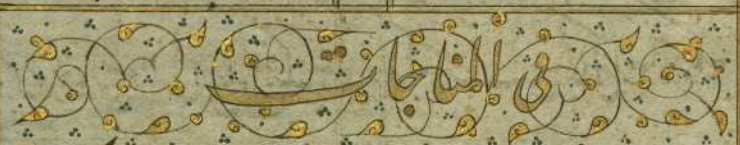 فی المناجات